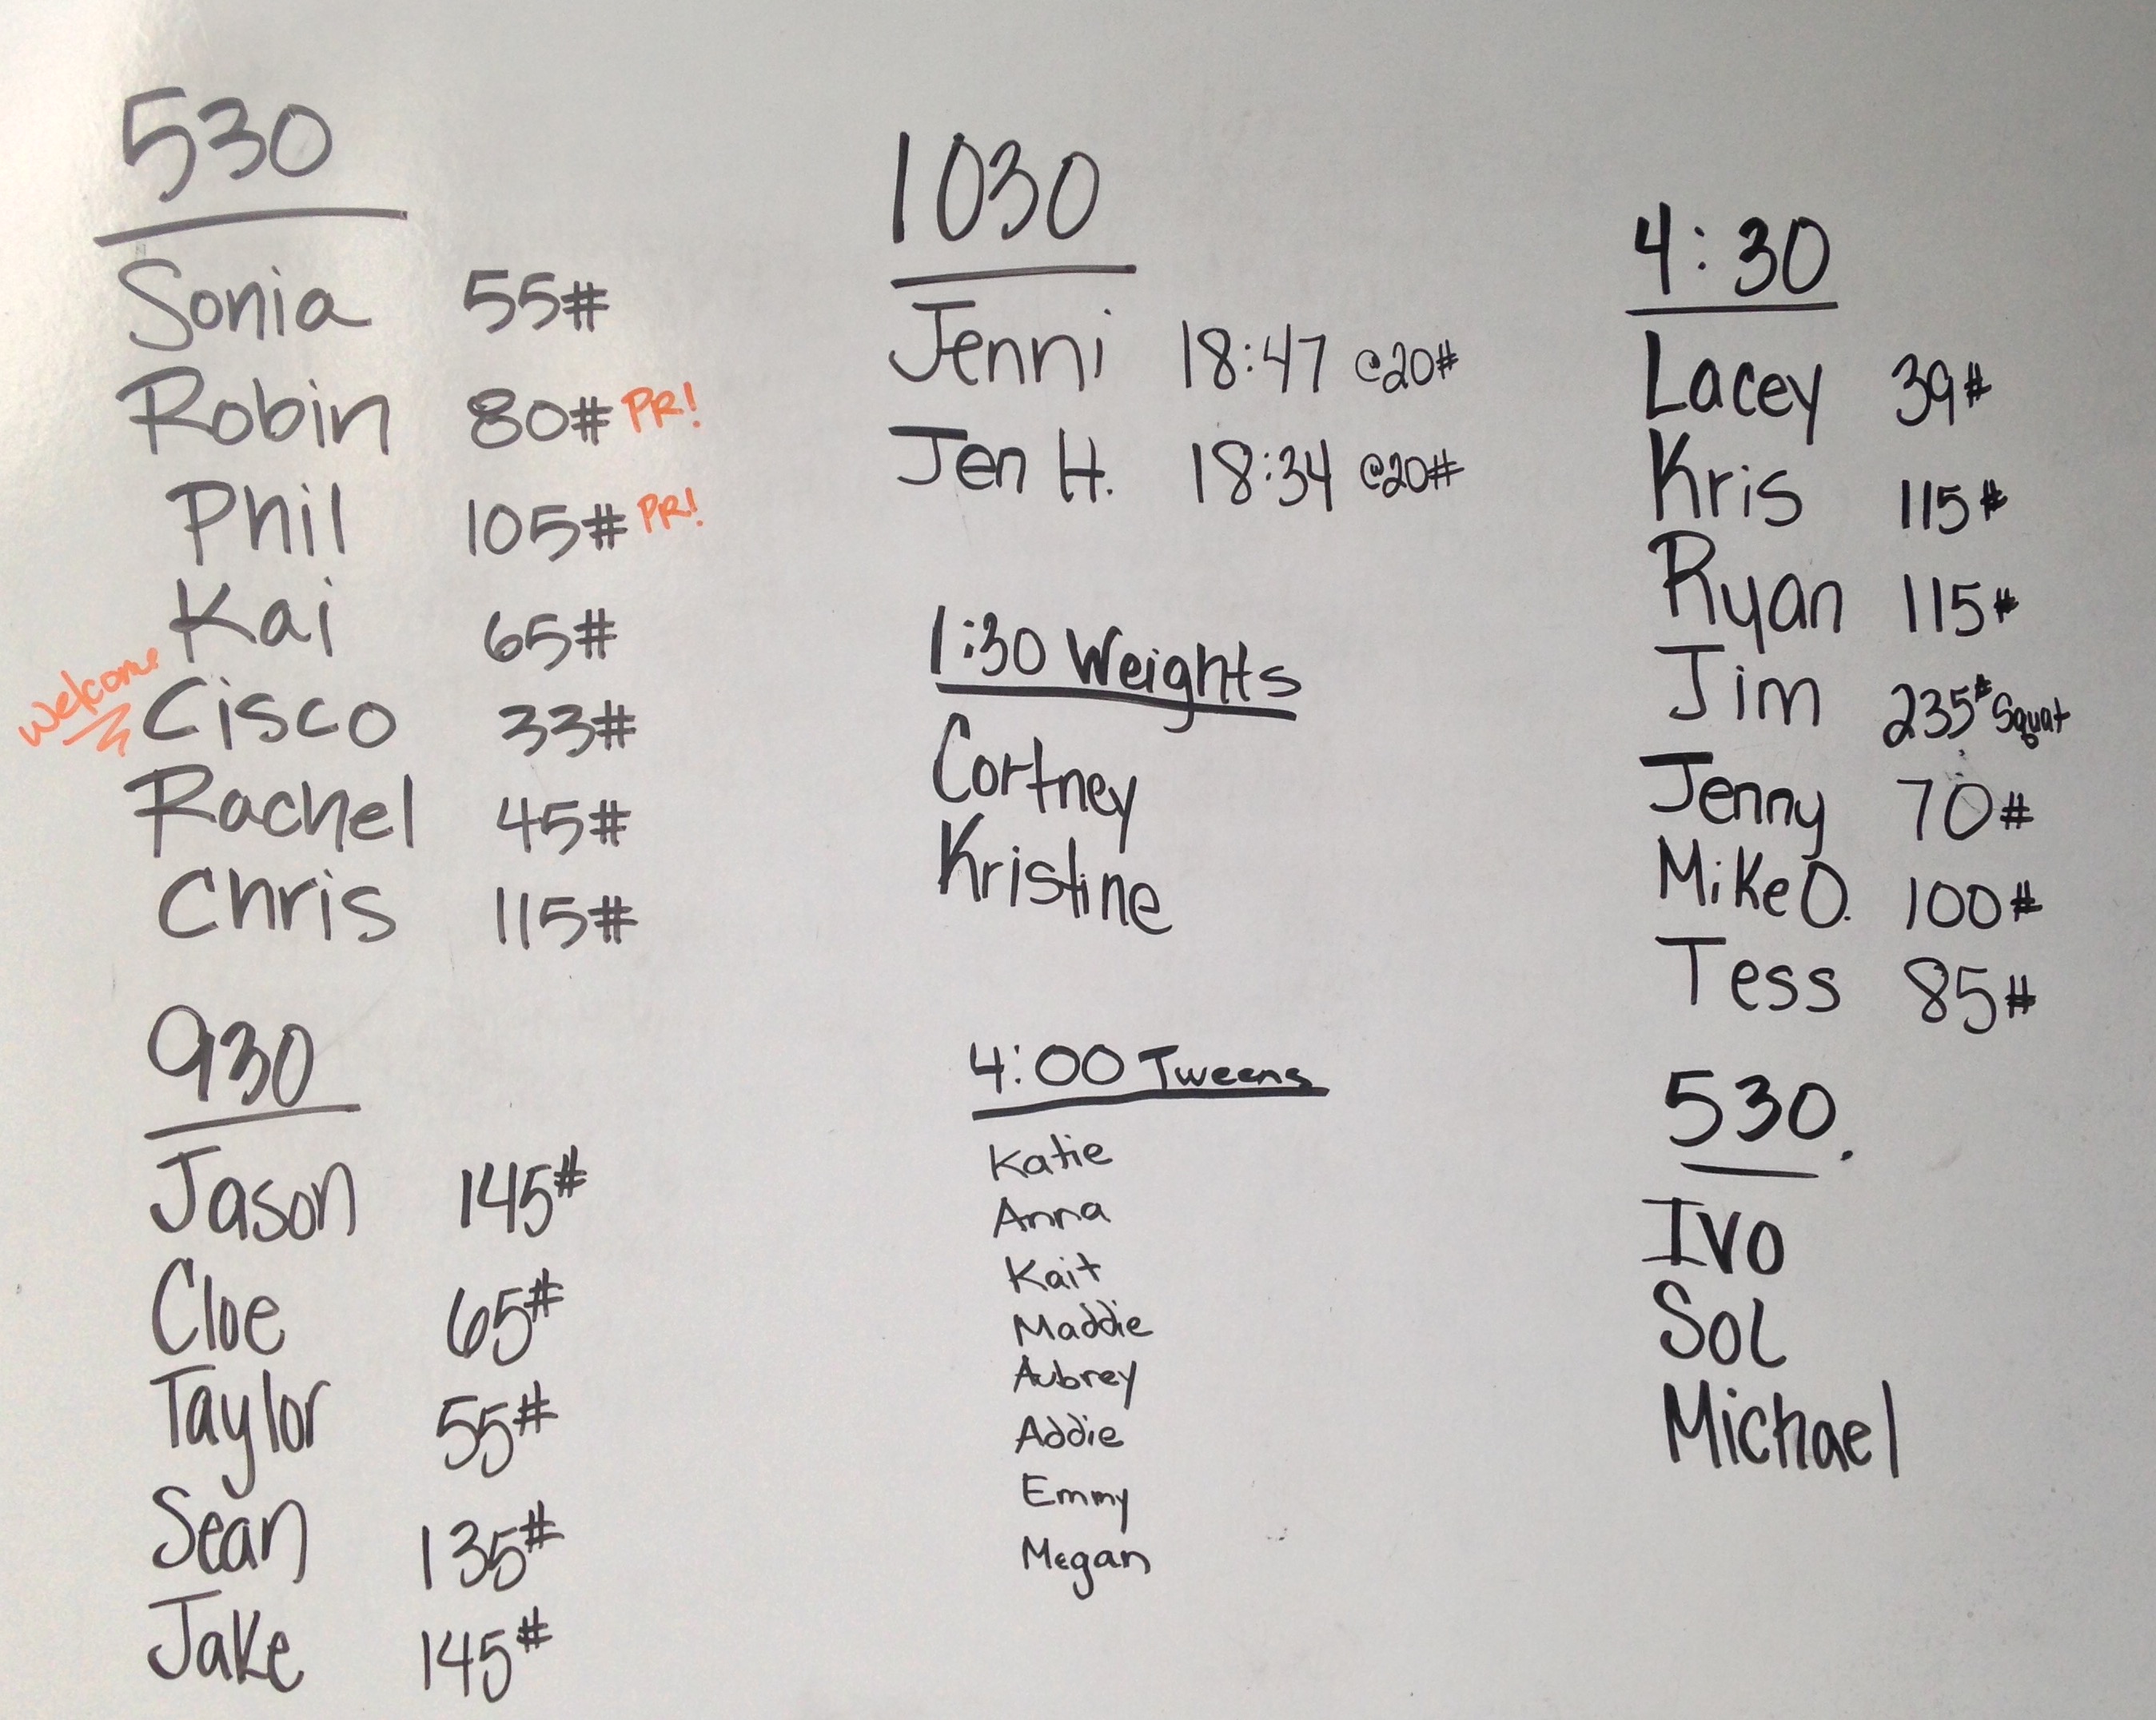 530
Sonia 55#
Robin 80# PR!
Phil 105# PR!
Kai 65#
Welcome Cisco 33#
Rachel 45#
Chris 115#
930
Jason 145#
Cloe 65#
Taylor 55#
Sean 135#
Jake 145#
1030
Jenni 18:47 @20#
Jen H. 18:34 @20#
1:30 Weights
Cortney
Kristine
4:00 Tweens
Katie
Anna
Kait
Maddie
Aubrey
Addie
Emmy
Megan
4:30
Lacey 39#
Kris 115#
Ryan 115#
Jim 235# Squat
Jenny 70#
Mike O. 100#
Tess 85#
530.
Ivo
Sol
Michael